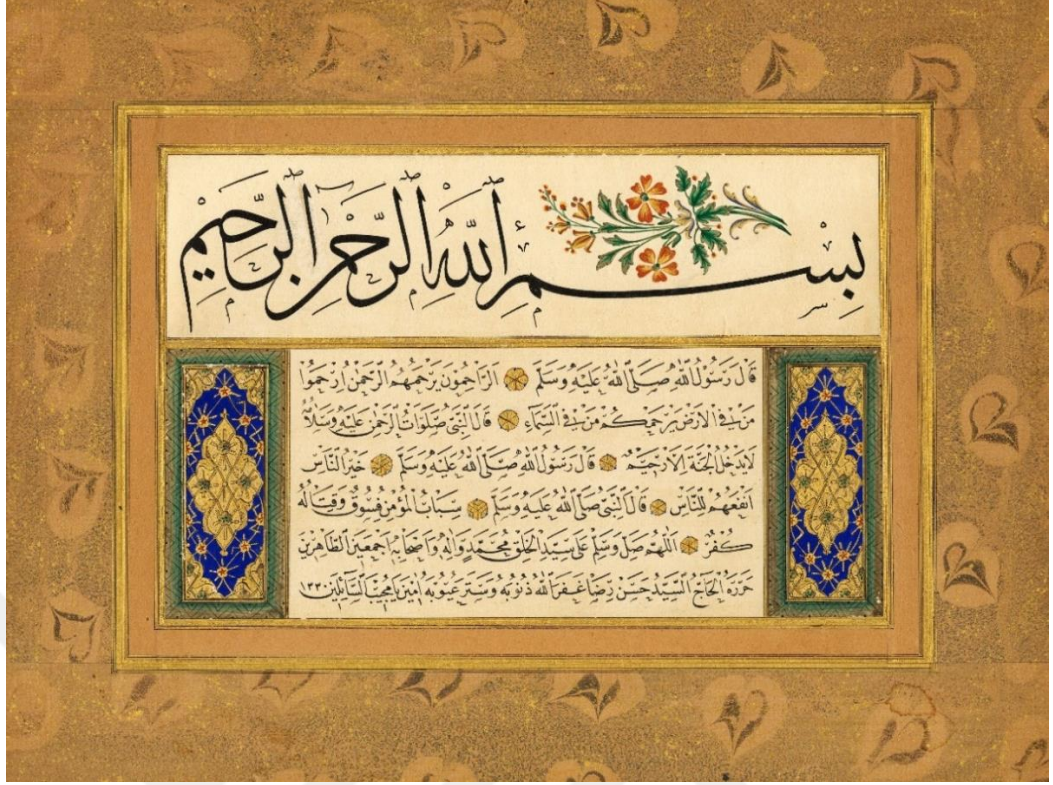 بِسْمِ اللّٰهِ الرَّحْمٰنِ الرَّحِيْمِ
قَالَ رَسُولُ اللّٰهِ صَلَّى اللّٰهُ عَلَيْهِ وَسَلَّمَ الرَّاحِمُونَ يَرْحَمُهُمُ الرَّحْمٰنُ اِرْحَمُوا
مَنْ فِي الْاَرْضِ يَرْحَمْكُمْ مَنْ فِي السَّمَاءِ قَالَ النَّبِيُّ صَلَوَاتُ الرَّحْمٰنِ عَلَيْهِ وَسَلَامُهُ
لَا يَدْخُلُ الْجَنَّةَ اِلَّا رَحِيمٌ قَالَ رَسُولُ اللّٰهِ صَلَّى اللّٰهُ عَلَيْهِ وَسَلَّمَ خَيْرُ النَّاسِ
اَنْفَعُهُمْ لِلنَّاسِ قَالَ النَّبِيُّ صَلَّى اللّٰهُ عَلَيْهِ وَسَلَّمَ سِبَابُ الْمُؤْمِنِ فُسُوقٌ وَقِتَالُهُ
كُفْرٌ اَللّٰهُمَّ صَلِّ وَسَلِّمْ عَلٰى سَيِّدِ الْخَلْقِ مُحَمَّدٍ وَاٰلِهِ وَاَصْحَابِهِ اَجْمَعِينَ الطَّاهِرِينَ
حَرَّرَهُ الْحَاجُّ السَّيِّدُ حَسَنْ رِضَا غَفَرَ اللّٰهُ ذُنُوبَهُ وَسَتَرَ عُيُوبَهُ اٰمِينَ يَا مُجِيبَ السَّائِلِينَ ١٣٣٠